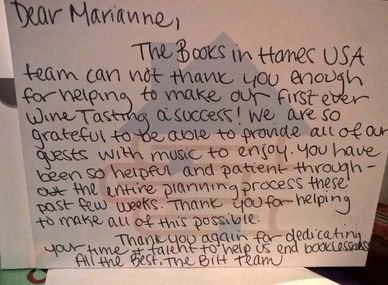 Dear Marianne,
The Books in Homes USA
team can not thank you enough
for helping to make our first ever
Wine Tasting a success! We are so
grateful to be able to provide all of our
guests with music to enjoy. You have
been so helpful and patient through-
out the entire planning process these
past few weeks. Thank you for helping
to make all of this possible.
Thank you again for dedicating
your time & talent to help us end booklessness
All the Best, The BIH Team